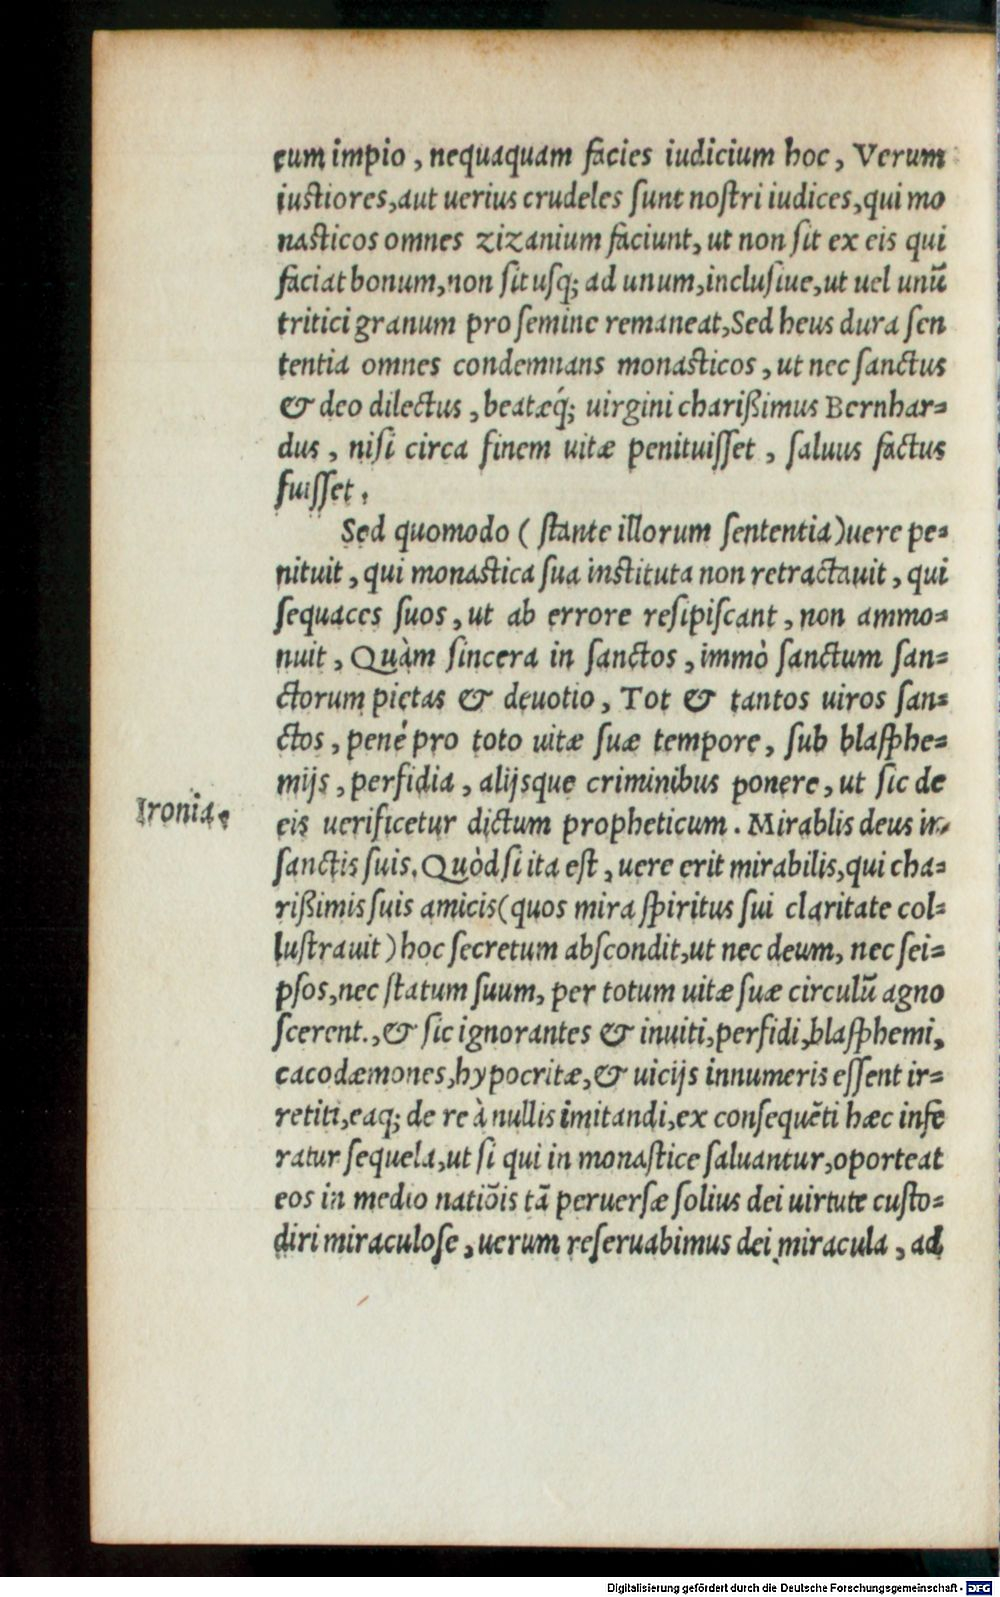 cum impio, nequaquam facies iudicium hoc, Verum
iustiores, aut uerius crudeles sunt nostri iudices, qui mo
nasticos omnes zizanium faciunt, ut non sit ex eis qui
faciat bonum, non sit usq; ad unum, inclusiue, ut uel unū
tritici granum pro semine remaneat, Sed heus dura sen
tentia omnes condemnans monasticos, ut nec sanctus
& deo dilectus, beatæq́; uirgini charißimus Bernhar=
dus, nisi circa finem uitæ penituisset, saluus factus
fuisset.
Sed quomodo (stante illorum sententia) uere pe=
nituit, qui monastica sua instituta non retractauit, qui
sequaces suos, ut ab errore resipiscant, non ammo=
nuit, Quàm sincera in sanctos, immò sanctum san=
ctorum pietas & deuotio, Tot & tantos uiros san=
ctos, penè pro toto uitæ suæ tempore, sub blasphe=
mijs, perfidia, alijsque criminibus ponere, ut sic de
Ironia.
eis uerificetur dictum propheticum. Mirablis deus in
sanctis suis. Quòd si ita est, uere erit mirabilis, qui cha=
rißimis suis amicis (quos mira spiritus sui claritate col=
lustrauit) hoc secretum abscondit, ut nec deum, nec sei=
psos, nec statum suum, per totum uitæ suæ circulū agno
scerent., & sic ignorantes & inuiti, perfidi, blasphemi,
cacodæmones, hypocritæ, & uicijs innumeris essent ir=
retiti, eaq; de re à nullis imitandi, ex consequēti hæc infe
ratur sequela, ut si qui in monastice saluantur, oporteat
eos in medio natiōis tā peruersæ solius dei uirtute custo=
diri miraculose, uerum reseruabimus dei miracula, ad
Digitalisierung gefördert durch die Deutsche Forschungsgemeinschaft - DFG